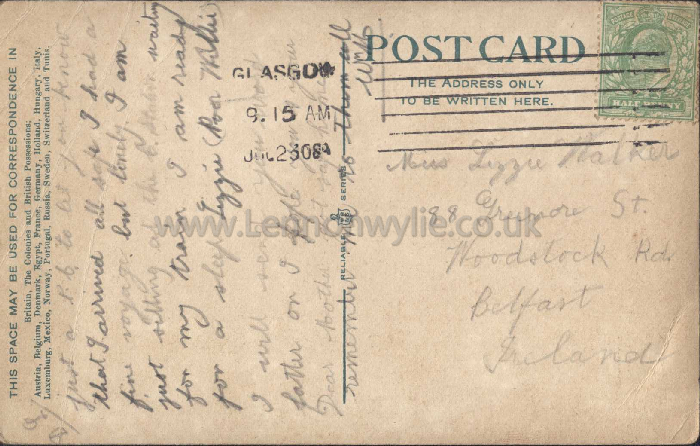 THIS SPACE MAY BE USED FOR CORRESPONDENCE IN
Britain, The Colonies and British Possessions;
Austria, Belgium, Denmark, Egypt, France, Germany, Holland, Hungary, Italy,
Luxemburg, Mexico, Norway, Portugal, Russia, Sweden, Switzerland and Tunis.
Just a P.C. to let you know
that I arrived all safe I had a
fine voyage but lonely. I am
just sitting at the Station waiting
for my train I am ready
for a sleep Lizzie (Poor Willie)
I will send you
letter on
Dear Mother
remember me to them all
Willie
RELIABLE SERIES
GLASGOW
9.15 AM
JUL 23 08
POST CARD
THE ADDRESS ONLY
TO BE WRITTEN HERE.
HALF PENNY
Miss Lizzie Walker
88 St.
Woodstock Rd
Belfast
Ireland
www.Lennonwylie.co.uk